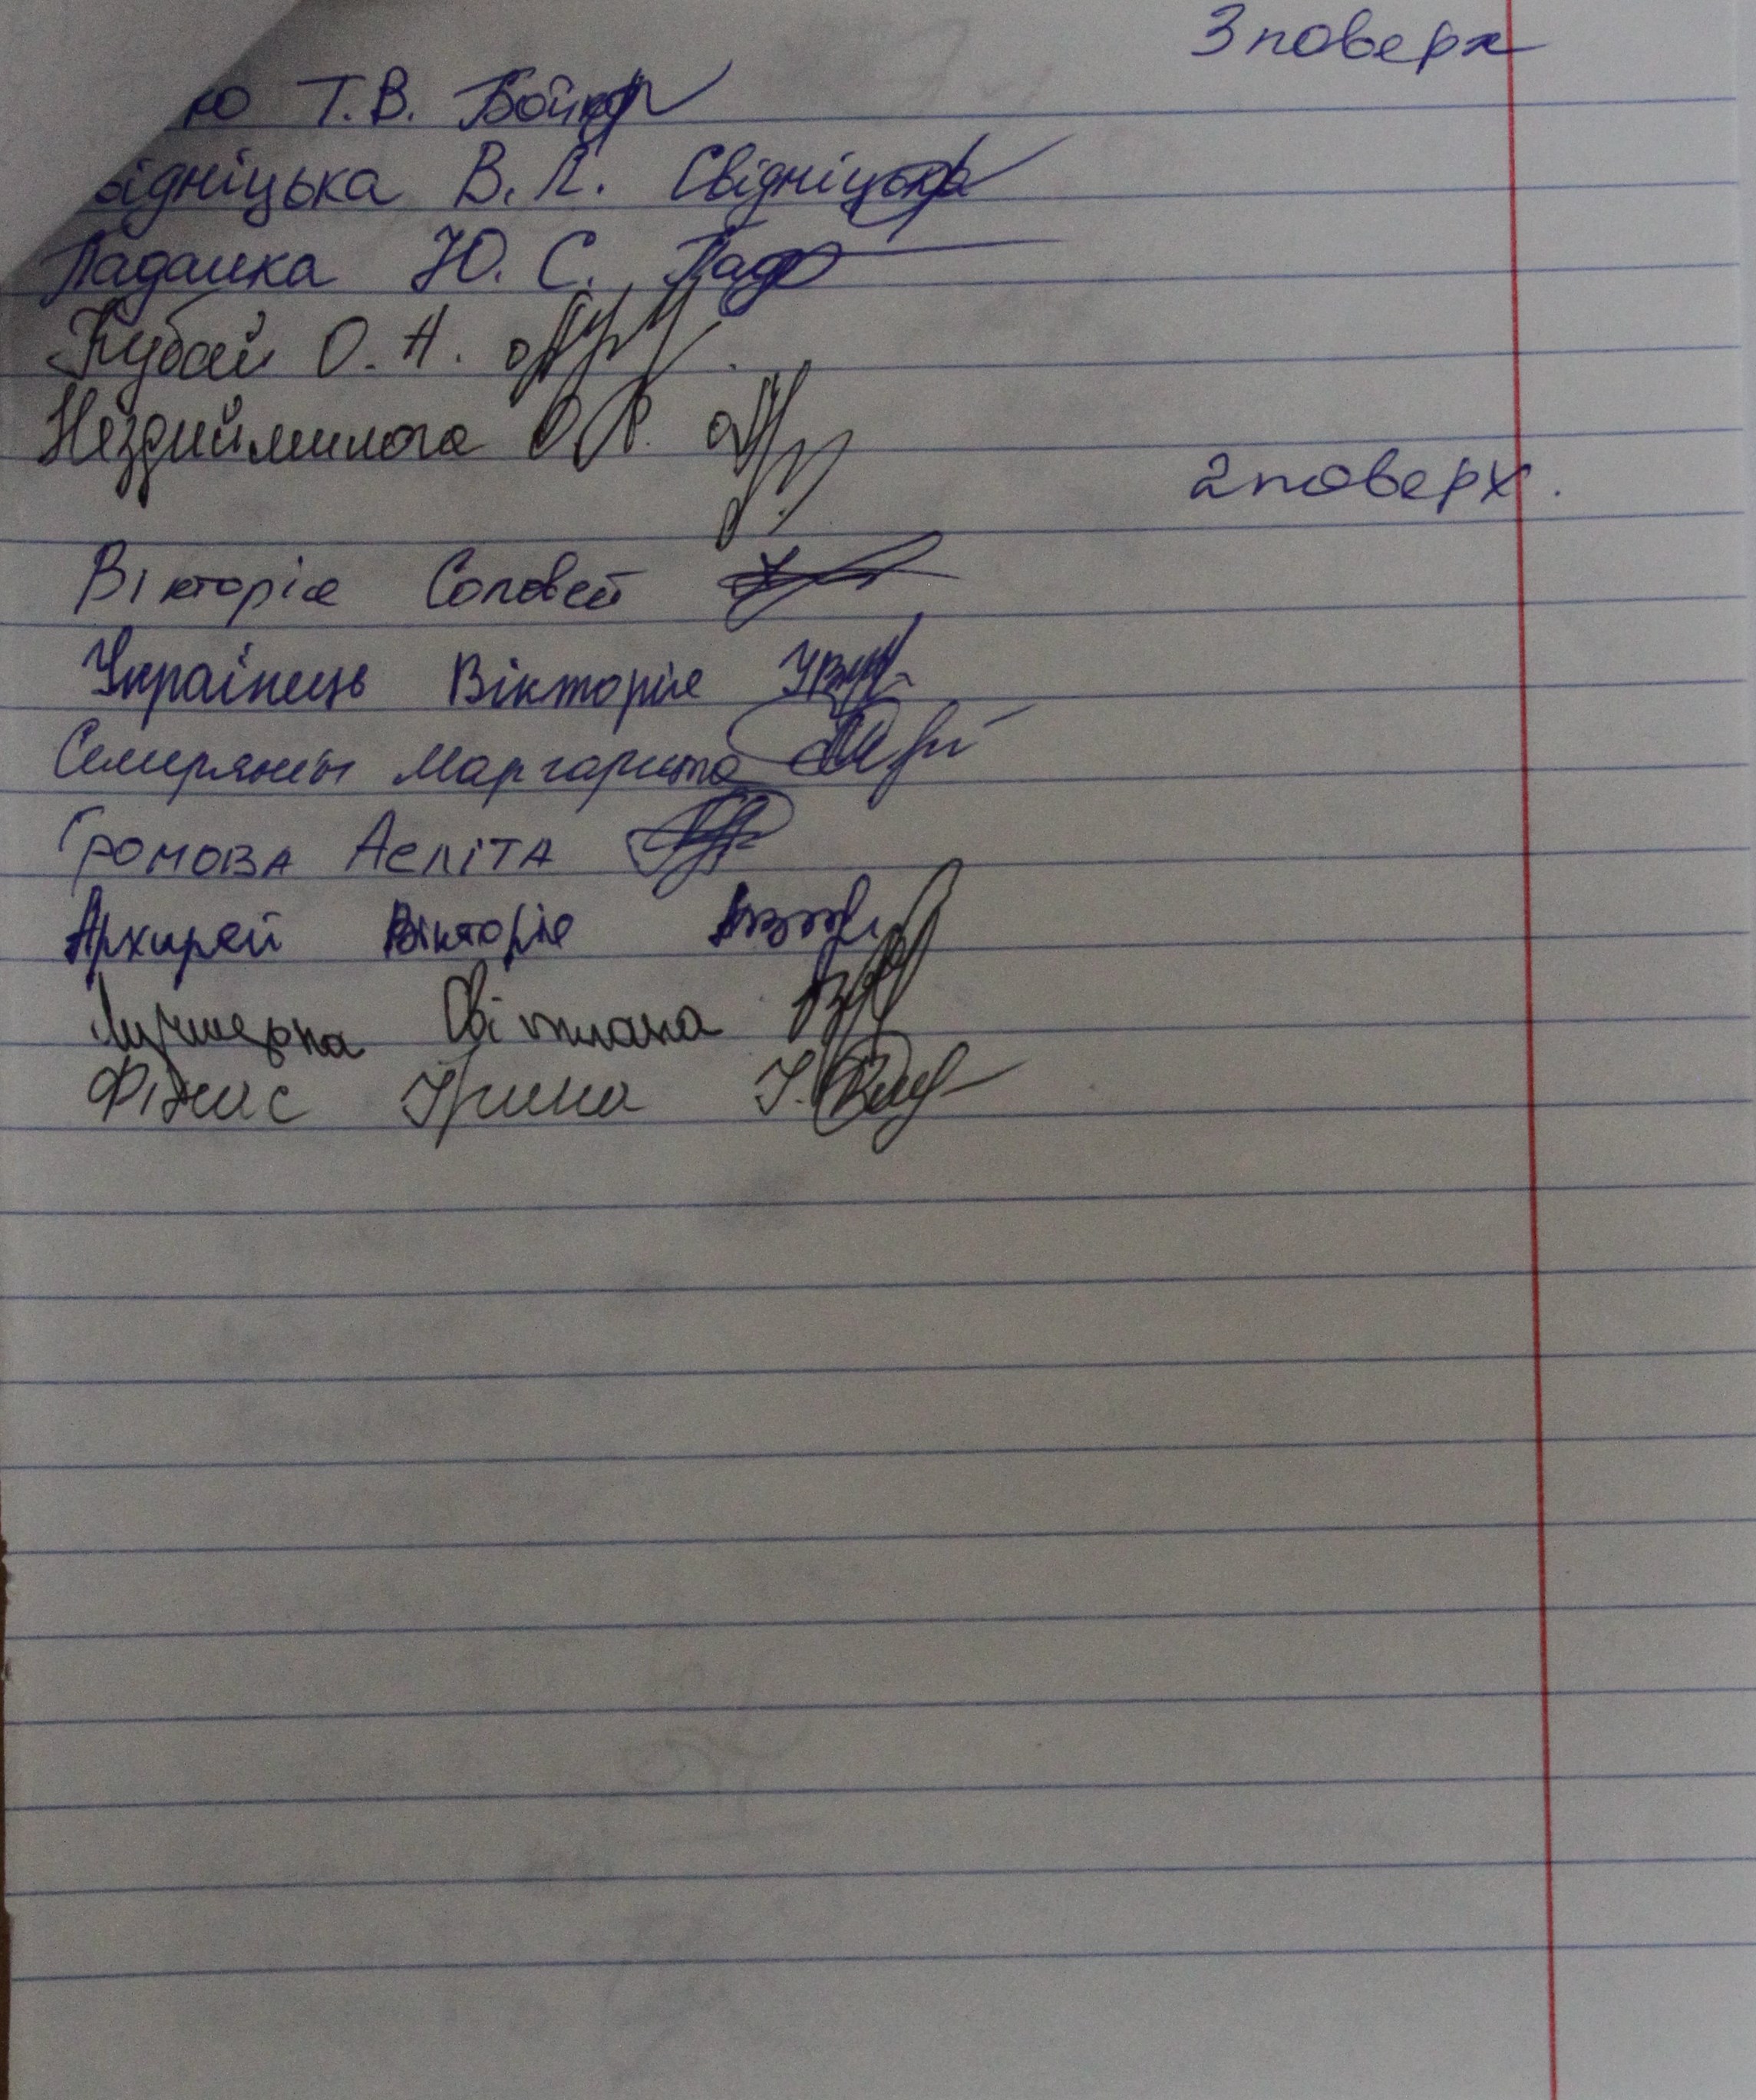 3 поверх
ко Т.В. Бойко
відніцька В.Л. Свідніцька
Ладашка Ю. С. Лад
Кубай О. А.
Нездийминога О. Р.
2 поверх.
Вікторія Соловей
Українець Вікторія
Семирянин Маргарита
Громова Аеліта
Архирей Вікторія
Світлана
Фіжис Ірина